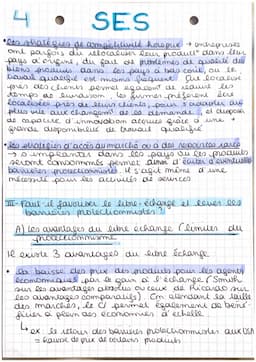 4 SES
• Les stratégies de compétitivité hors prix → entreprises
ont parfois du relocaliser leur produit° dans leur
pays d'origine, du fait de problèmes de qualité de
biens produits dans les pays à bas coût, ou le
travail qualifié est moins fréquent. La localisat°
près des clients permet également de réduire les
temps de livraison. Les firmes préfèrent être
localisées près de leurs clients, pour s'adapter au
plus vite aux changements de la demande, et disposer
de capacité d'innovation accrues grâce à une +
grande disponibilité de travail qualifié
• Les stratégies d'accès au marché ou à des ressources rares
→ s'implanter dans les pays où les produits
seront consommés permet d'éviter d'éventuelles
barrières protectionnistes. Il s'agit même d'une
nécessité pour les activités de services
III- Faut-il favoriser le libre-échange et lever les
barrières protectionnistes?
A) les avantages du libre échange / limites du
protectionnisme
Il existe 3 avantages du libre échange
• La baisse des prix des produits pour les agents
économiques par le gain à l'échange (Smith
sur les avantages absolus ou ceux de Ricardo sur
les avantages comparatifs). En étendant la taille
des marchés, le LE permet également de béné-
ficier à plein des économies d'échelle
↳ ex: le retour des barrières protectionnistes aux USA
= hausse de prix de certains produits